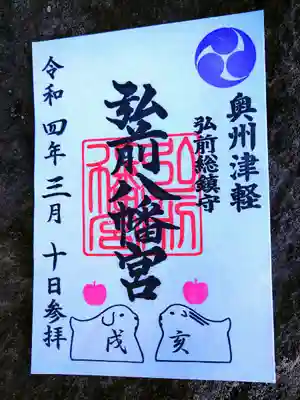 奥州津軽
弘前総鎮守
弘前八幡宮
令和四年三月十日参拝
戌
亥